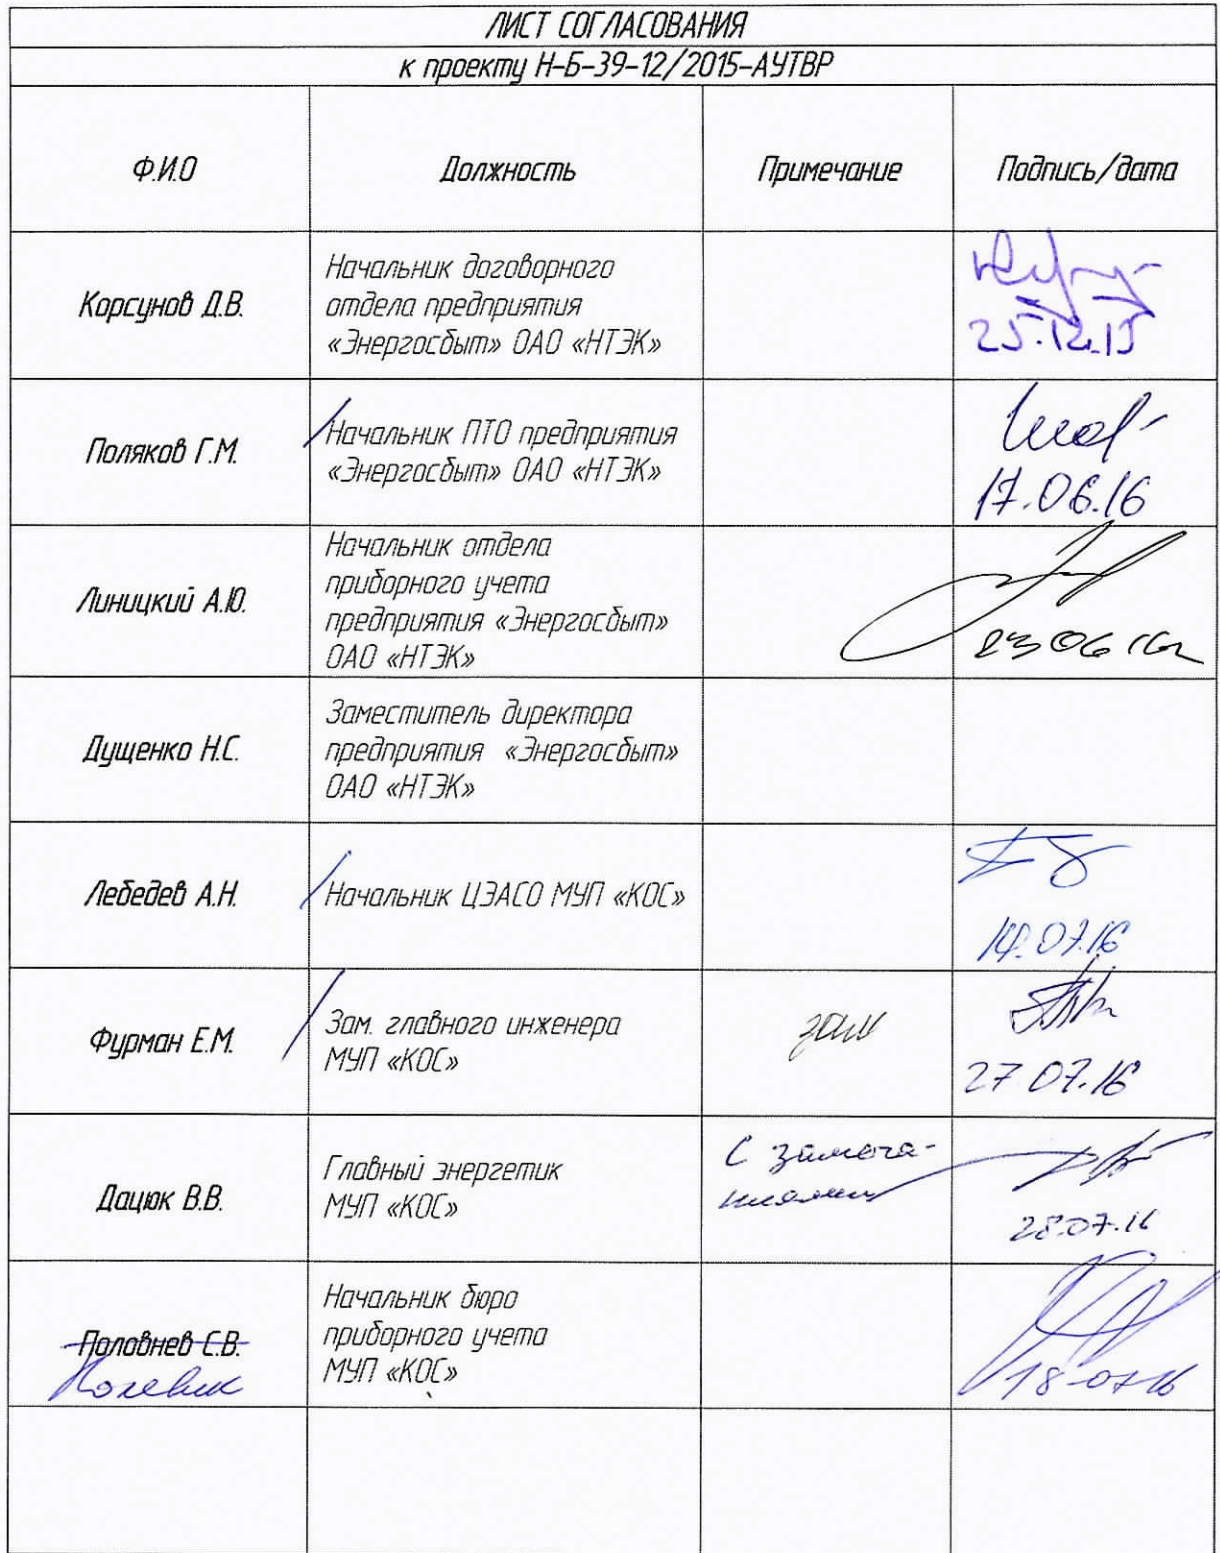 ЛИСТ СОГЛАСОВАНИЯ
к проекту Н-Б-39-12/2015-АУТВР
Ф.И.О
Должность
Примечание
Подпись/дата
Корсунов Д.В.
Начальник договорного
отдела предприятия
«Энергосбыт» ОАО «НТЭК»
25.12.15
Поляков Г.М.
Начальник ПТО предприятия
«Энергосбыт» ОАО «НТЭК»
17.06.16
Линицкий А.Ю.
Начальник отдела
приборного учета
предприятия «Энергосбыт»
ОАО «НТЭК»
23 06 16г
Дущенко Н.С.
Заместитель директора
предприятия «Энергосбыт»
ОАО «НТЭК»
Лебедев А.Н.
Начальник ЦЭАСО МУП «КОС»
14.07.16
Фурман Е.М.
Зам. главного инженера
МУП «КОС»
зам
27.07.16
Дацюк В.В.
Главный энергетик
МУП «КОС»
С замеча-
ниями
28.07.16
Половнев С.В.
Начальник бюро
приборного учета
МУП «КОС»
18-07-16